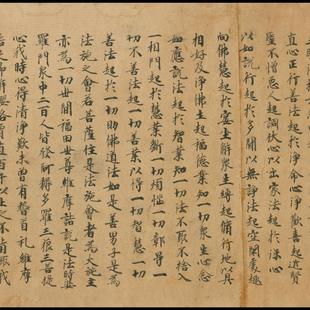 直心正行善法起於淨命心淨歡喜起近賢
聖不憎惡人起調伏心以出家法起於深心
以如說行起於多聞以無諍法起空閑處趣
向佛慧起於宴坐解眾生縛起脩行地以具
相好及淨佛土起福德業知一切眾生心念
如應說法起於智業知一切法不取不捨入
一相門起於慧業斷一切煩惱一切鄣导一
切不善法起一切善業以得一切智慧一切
善法起於一切助佛道法如是善男子是為
法施之會若菩薩住是法施會者為大施主
亦為一切世間福田世尊維摩詰說是法時婆
羅門眾中二百人皆發阿耨多羅三藐三菩提
心我時心得清淨歎未曾有稽首礼維摩
詰足即解瓔珞價直百千以上之不肯取我